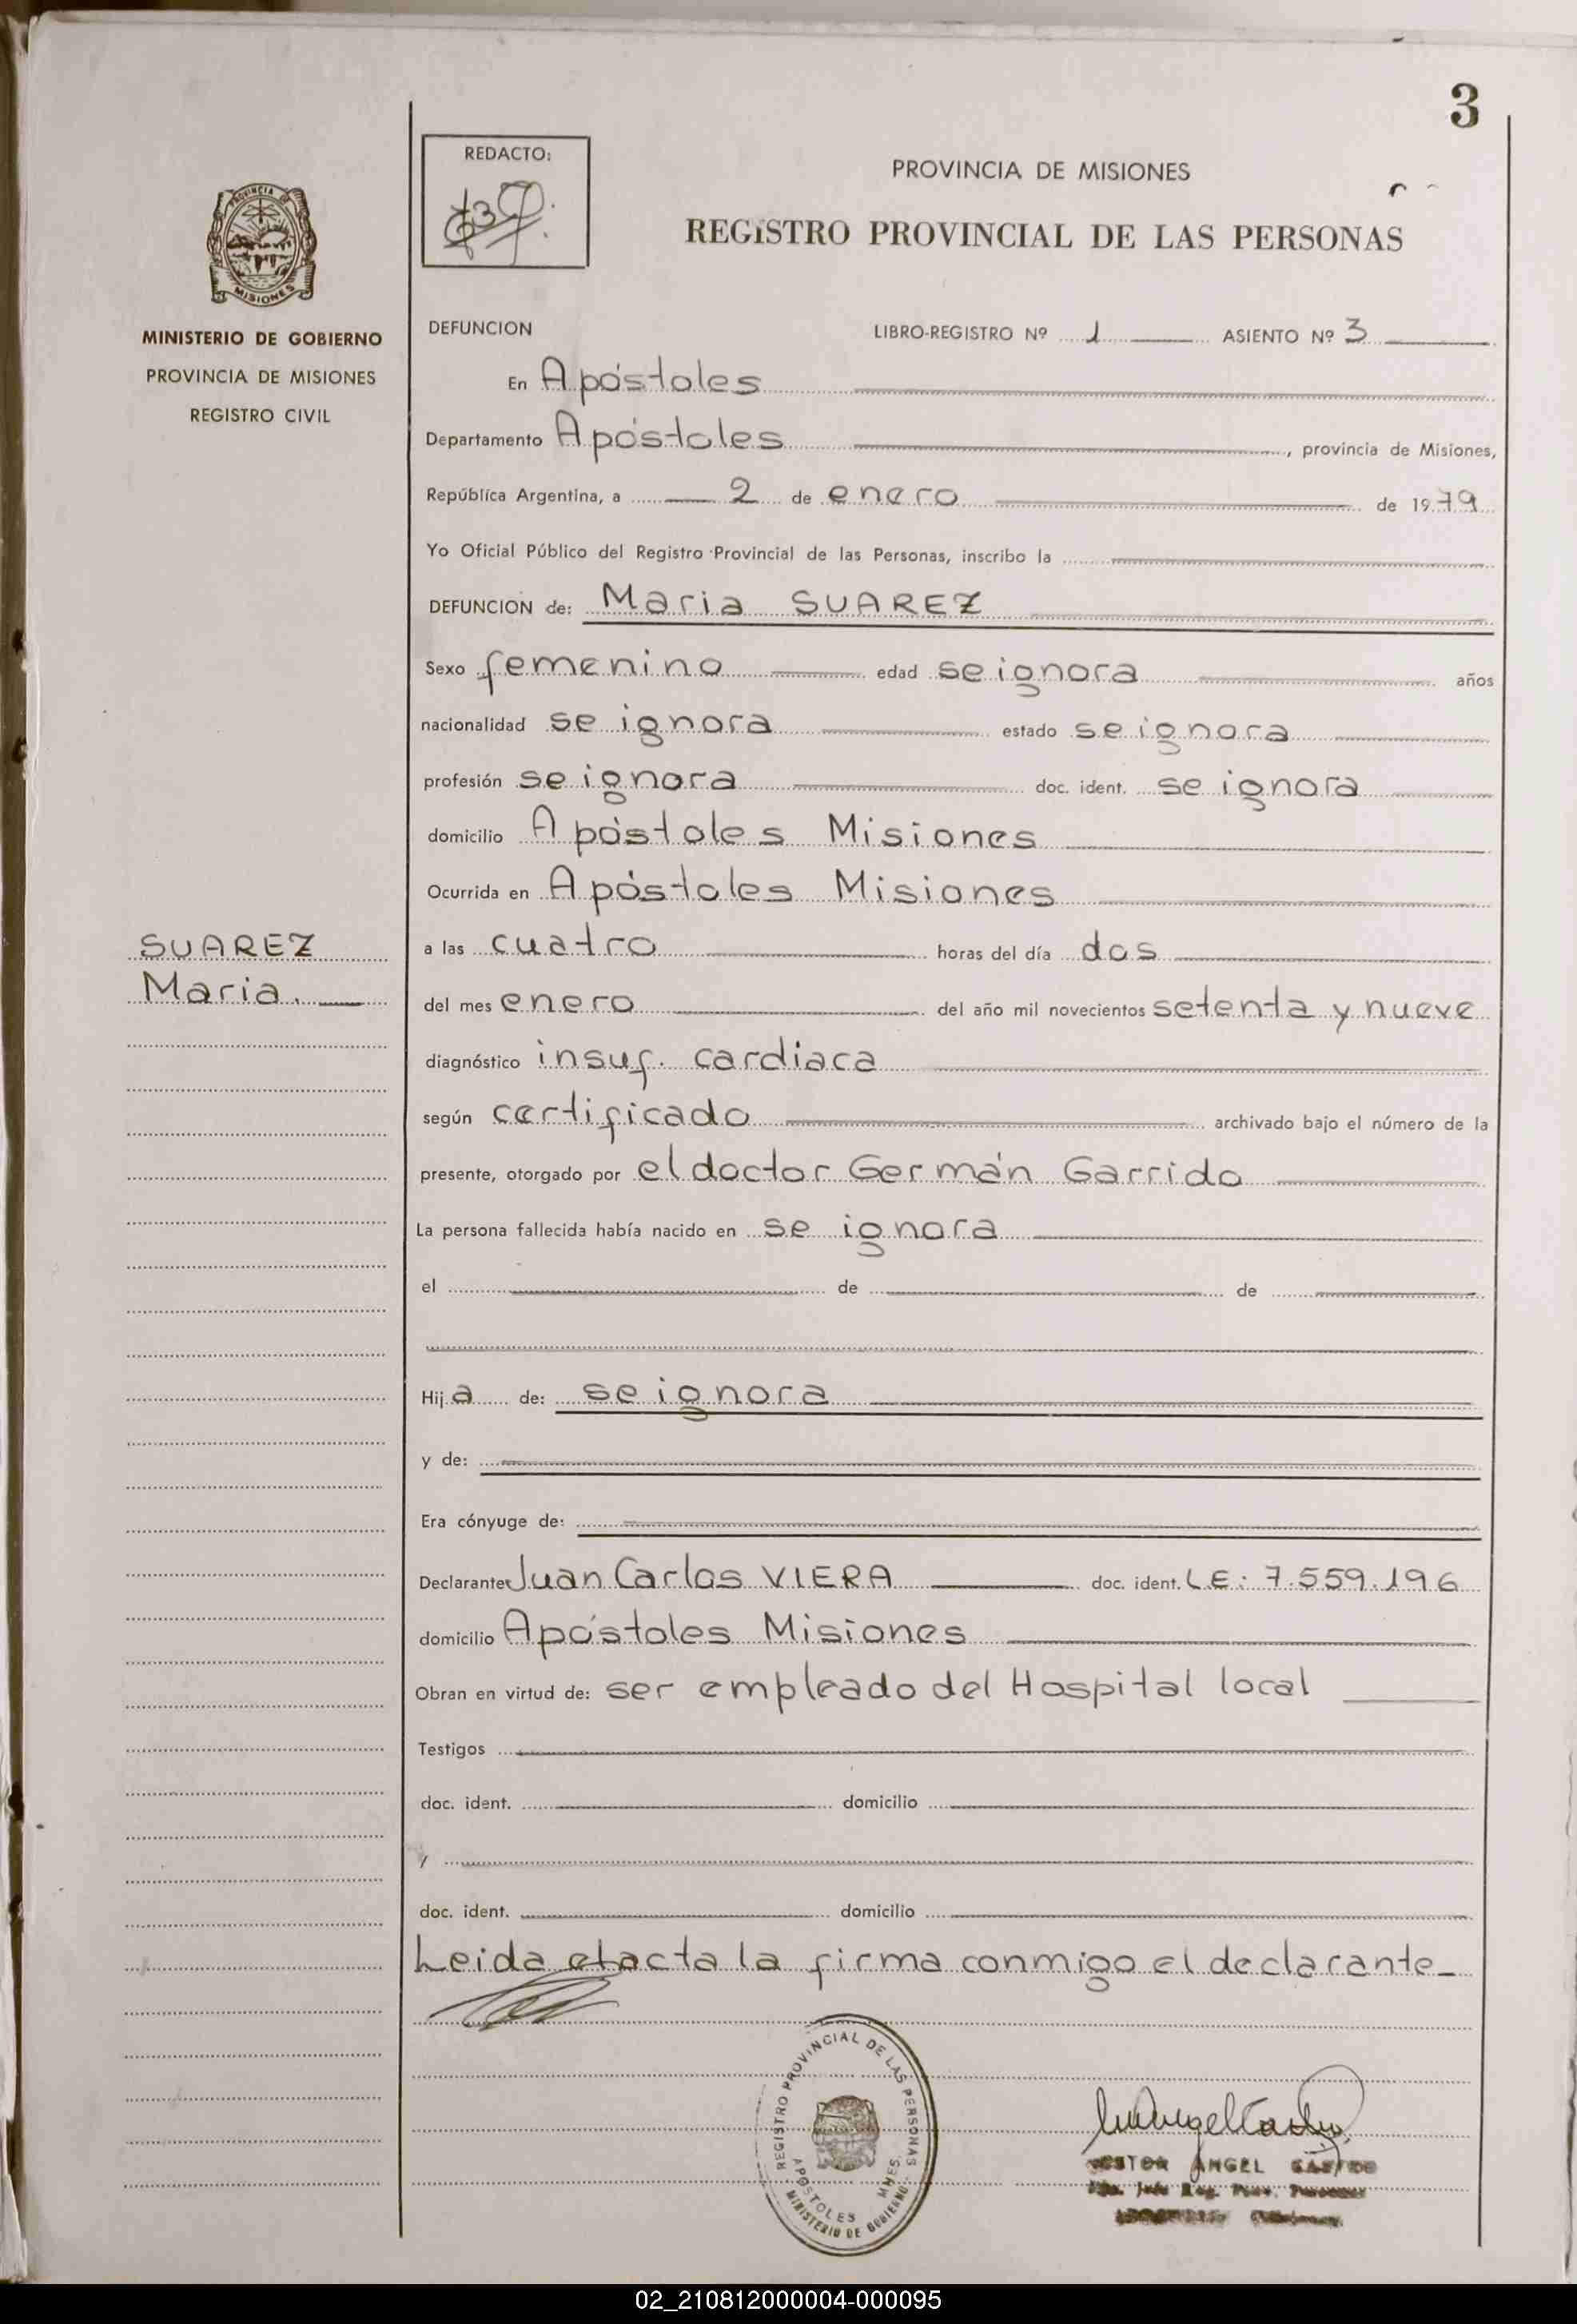 3
REDACTO:
PROVINCIA DE MISIONES
REGISTRO PROVINCIAL DE LAS PERSONAS
PROVINCIA DE
MISIONES
MINISTERIO DE GOBIERNO
PROVINCIA DE MISIONES
REGISTRO CIVIL
DEFUNCION LIBRO-REGISTRO Nº 1 ASIENTO Nº 3
En Apóstoles
Departamento Apóstoles, provincia de Misiones,
República Argentina, a 2 de enero de 1979
Yo Oficial Público del Registro Provincial de las Personas, inscribo la
DEFUNCION de: Maria SUAREZ
Sexo femenino edad se ignora años
nacionalidad se ignora estado se ignora
profesión se ignora doc. ident. se ignora
domicilio Apóstoles Misiones
Ocurrida en Apóstoles Misiones
SUAREZ
Maria.
a las cuatro horas del día dos
del mes enero del año mil novecientos setenta y nueve
diagnóstico insuf. cardiaca
según certificado archivado bajo el número de la
presente, otorgado por el doctor Germán Garrido
La persona fallecida había nacido en se ignora
el de de
Hija de: se ignora
y de:
Era cónyuge de:
Declarante Juan Carlos VIERA doc. ident. LE: 7.559.196
domicilio Apóstoles Misiones
Obran en virtud de: ser empleado del Hospital local
Testigos
doc. ident. domicilio
y
doc. ident. domicilio
Leida el acta la firma conmigo el declarante
REGISTRO PROVINCIAL DE LAS PERSONAS
APOSTOLES MNES.
MINISTERIO DE GOBIERNO
ANGEL
02_210812000004-000095